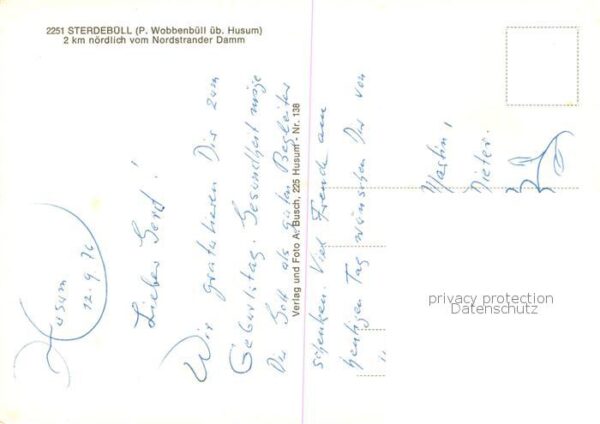 2251 STERDEBÜLL (P. Wobbenbüll üb. Husum)
2 km nördlich vom Nordstrander Damm
Husum
12.9.76
Lieber Gerd!
Wir gratulieren Dir zum
Geburtstag. Gesundheit möge
Der Gott als guten Begleiter
schenken. Viel Freude am
heutigen Tag wünschen Dir von
Martin,
Dieter.
Verlag und Foto A. Busch, 225 Husum - Nr. 138
privacy protection
Datenschutz